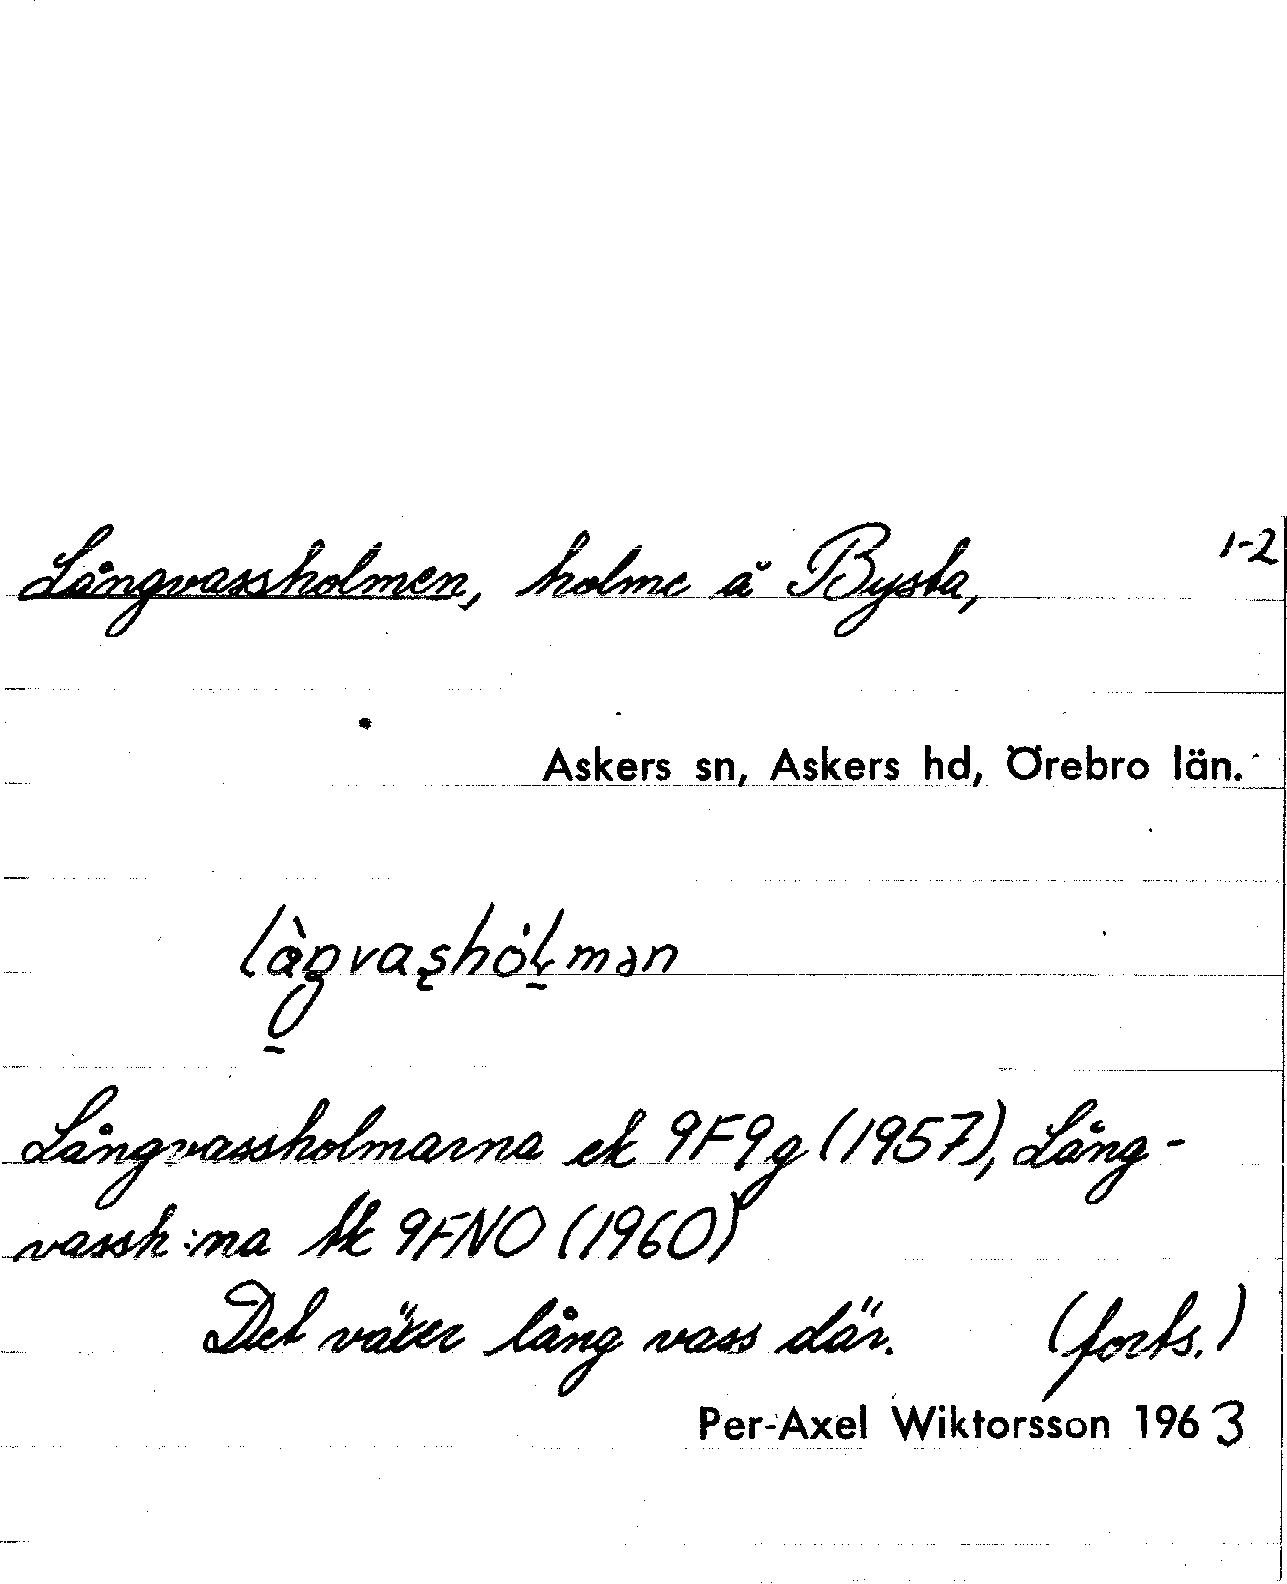 Långvassholmen, holme å Bysta, 1-2
Askers sn, Askers hd, Örebro län.
Långvassholmarna ek 9F9g (1957), Lång-
vassh:na tk 9FNO (1960)
Det växer lång vass där. (forts.)
Per-Axel Wiktorsson 1963